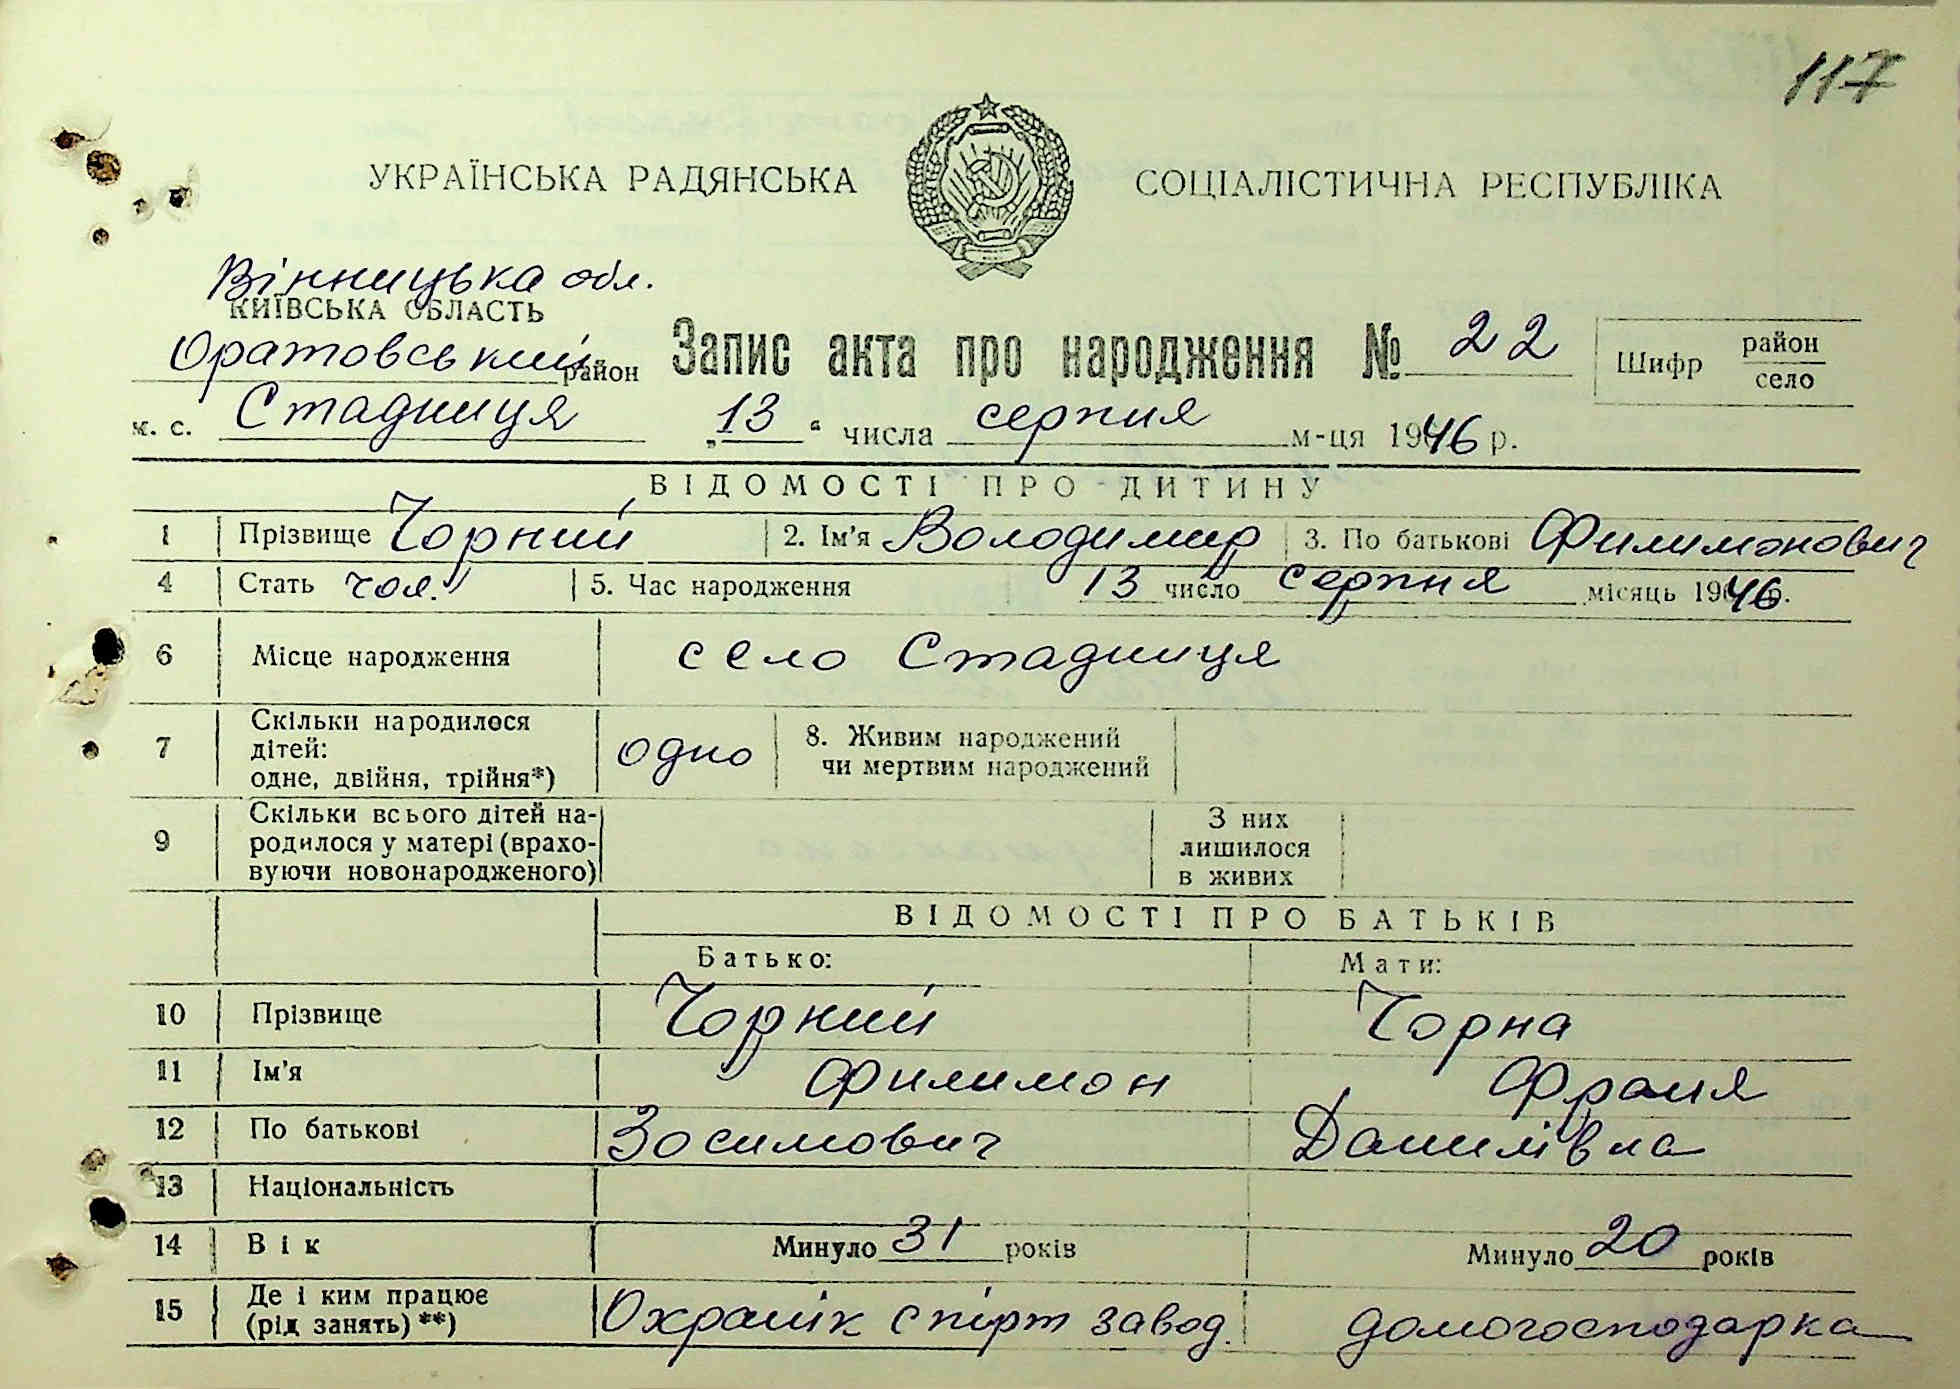 117
УКРАЇНСЬКА РАДЯНСЬКА СОЦІАЛІСТИЧНА РЕСПУБЛІКА
Вінницька обл.
КИЇВСЬКА ОБЛАСТЬ
Оратовський район Запис акта про народження № 22 Шифр район село
м. с. Стадниця „13“ числа серпня м-ця 1946 р.
ВІДОМОСТІ ПРО ДИТИНУ
1 Прізвище Чорний 2. Ім'я Володимир 3. По батькові Филимонович
4 Стать чол. 5. Час народження 13 число серпня місяць 1946 р.
6 Місце народження село Стадниця
7 Скільки народилося дітей: одне, двійня, трійня*) одно 8. Живим народжений чи мертвим народжений
9 Скільки всього дітей народилося у матері (враховуючи новонародженого) З них лишилося в живих
ВІДОМОСТІ ПРО БАТЬКІВ
Батько: Мати:
10 Прізвище Чорний Чорна
11 Ім'я Филимон Франя
12 По батькові Зосимович Данилівна
13 Національність
14 Вік Минуло 31 років Минуло 20 років
15 Де і ким працює (рід занять)**) Охранік спірт завод. домогосподарка